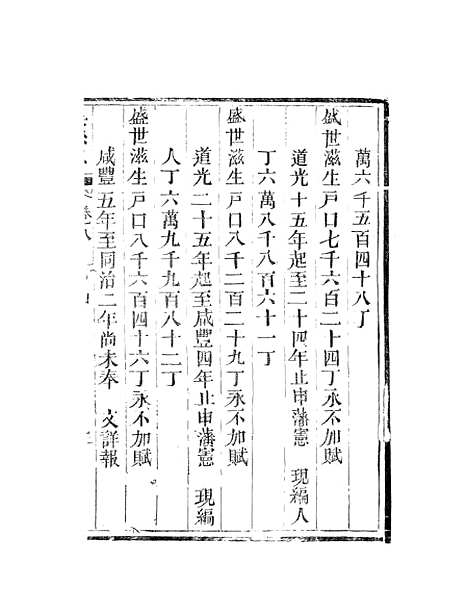 萬六千五百四十八丁
盛世滋生戸口七千六百二十四丁永不加賦
道光十五年起至二十四年止申藩憲 現編人
丁六萬八千八百六十一丁
盛世滋生戸口八千二百二十九丁永不加賦
道光二十五年起至咸豐四年止申藩憲 現編
人丁六萬九千九百八十二丁
盛世滋生戸口八千六百四十六丁永不加賦
咸豐五年至同治二年尚未奉 文詳報